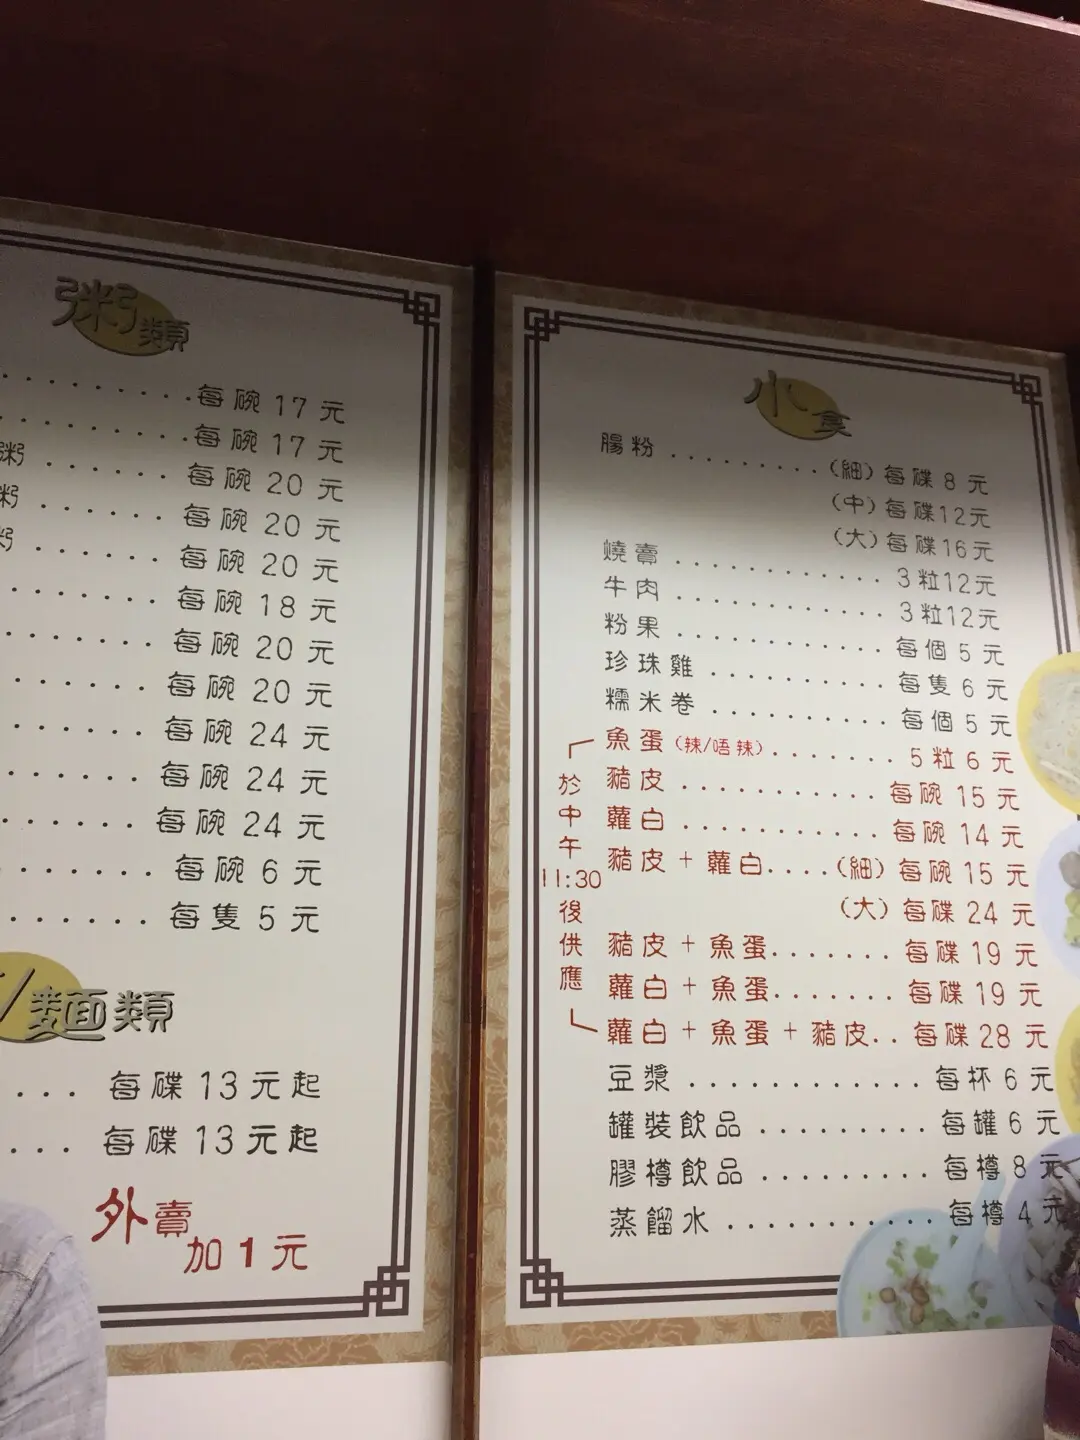 粥類
每碗 17 元
每碗 17 元
粥 每碗 20 元
粥 每碗 20 元
粥 每碗 20 元
每碗 18 元
每碗 20 元
每碗 20 元
每碗 24 元
每碗 24 元
每碗 24 元
每碗 6 元
每隻 5 元
麵類
每碟 13 元起
每碟 13 元起
外賣
加 1 元
小食
腸粉 (細) 每碟 8 元
(中) 每碟12元
(大) 每碟16元
燒賣 3粒12元
牛肉 3粒12元
粉果 每個 5 元
珍珠雞 每隻 6 元
糯米卷 每個 5 元
於中午11:30後供應
魚蛋 (辣/唔辣) 5粒 6 元
豬皮 每碗 15 元
蘿白 每碗 14 元
豬皮 + 蘿白 (細) 每碗 15 元
(大) 每碟 24 元
豬皮 + 魚蛋 每碟 19 元
蘿白 + 魚蛋 每碟 19 元
蘿白 + 魚蛋 + 豬皮 每碟 28 元
豆漿 每杯 6 元
罐裝飲品 每罐 6 元
膠樽飲品 每樽 8 元
蒸餾水 每樽 4 元